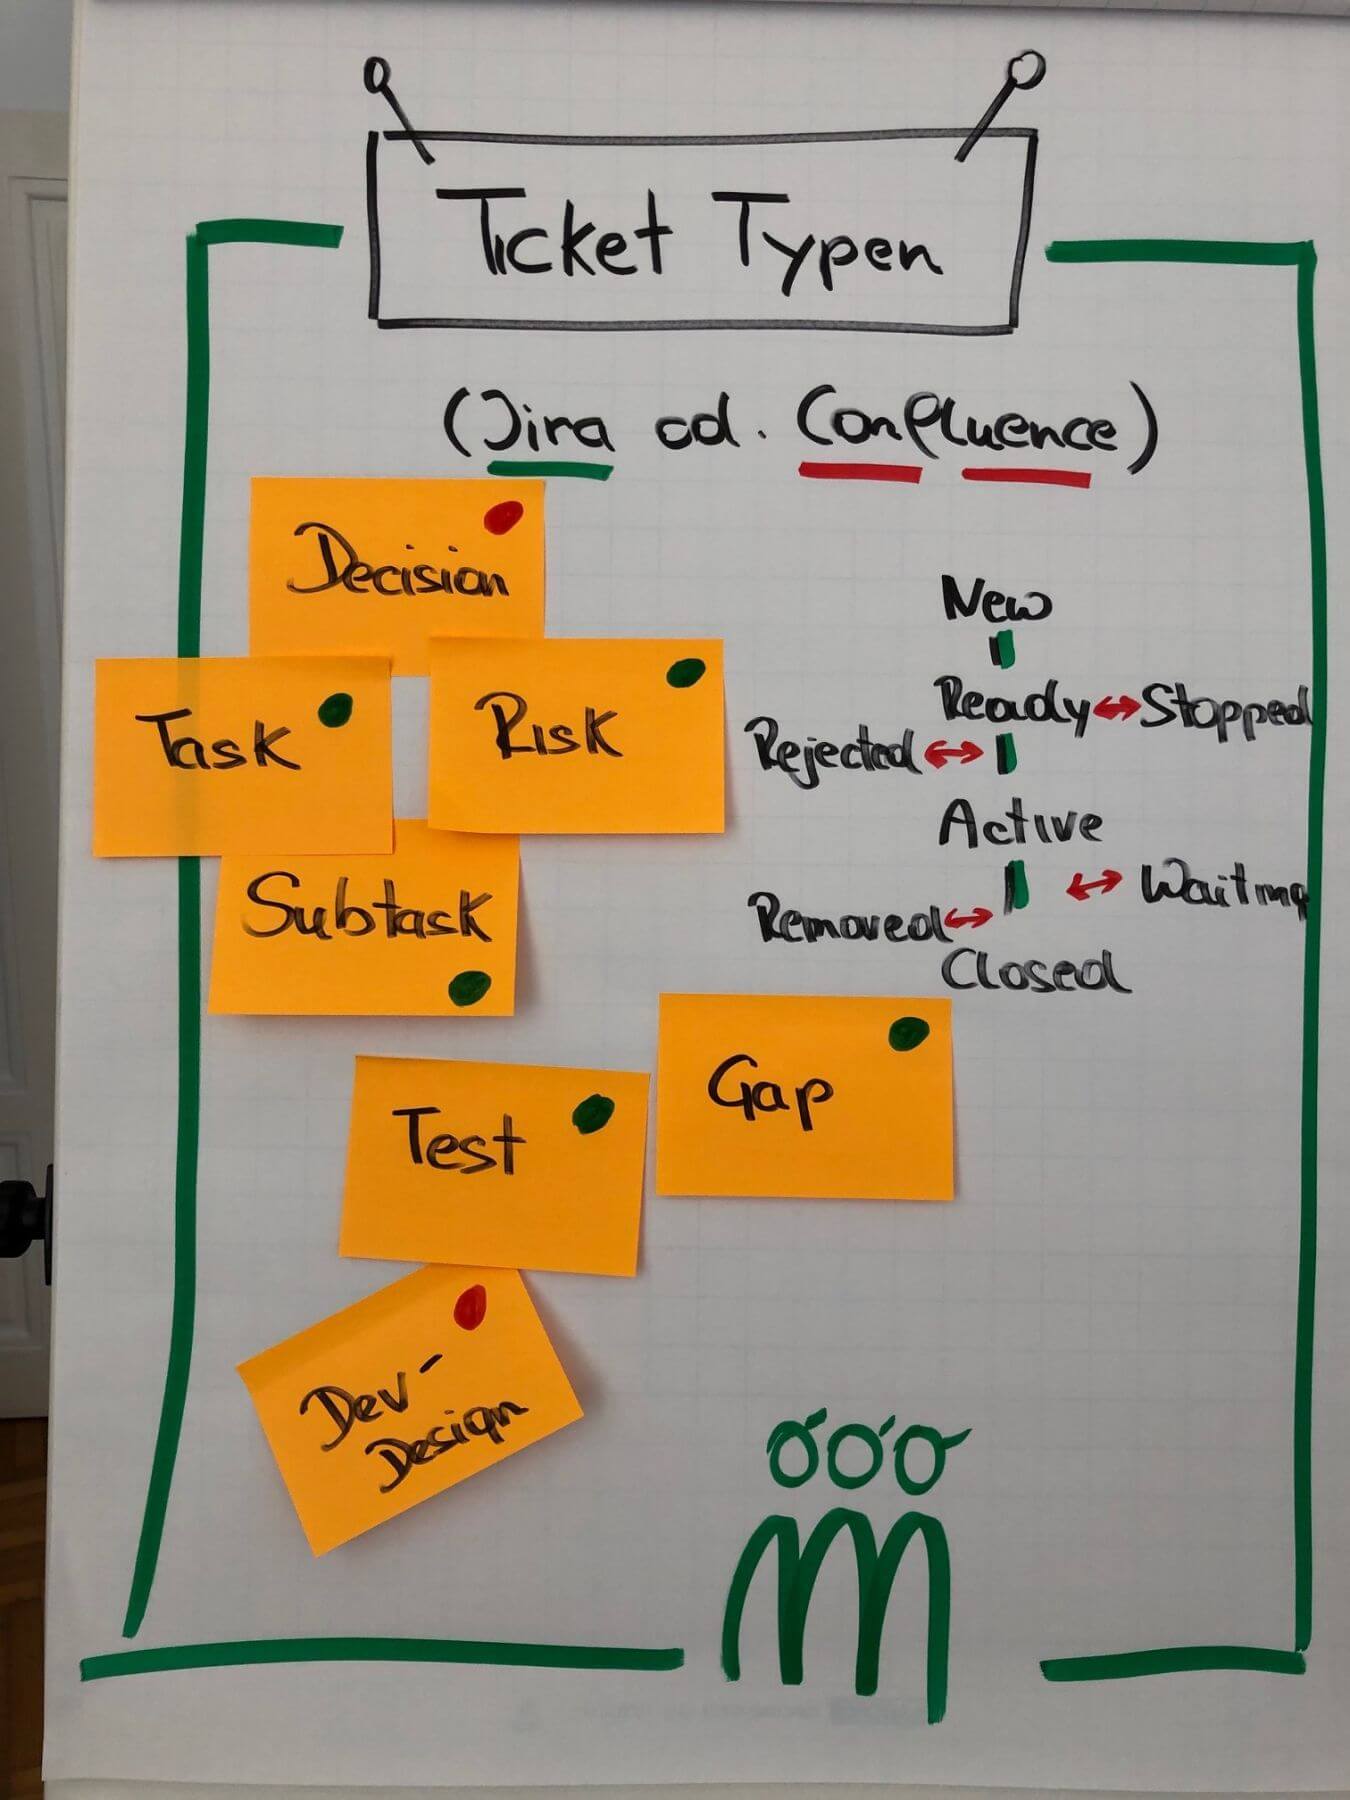 Ticket Typen
(Jira od. Confluence)
Decision
Task
Risk
Subtask
Test
Gap
Dev-
Design
New
Ready ↔ Stopped
Rejected ↔
Active
↔ Waiting
Removed ↔
Closed